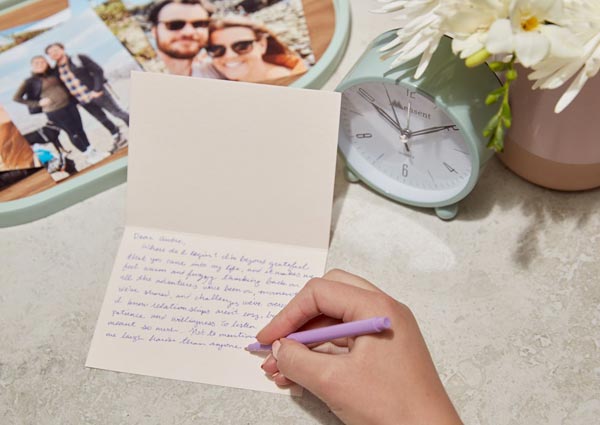 Dear
Where do I begin? I'm beyond grateful
that you came into my life, and it makes me
feel warm and fuzzy thinking back on
all the adventures we've been on,
we've shared, and challenges we've
I know relationships aren't easy,
patience and willingness to listen
meant so much. Not to mention
me laugh harder than anyone